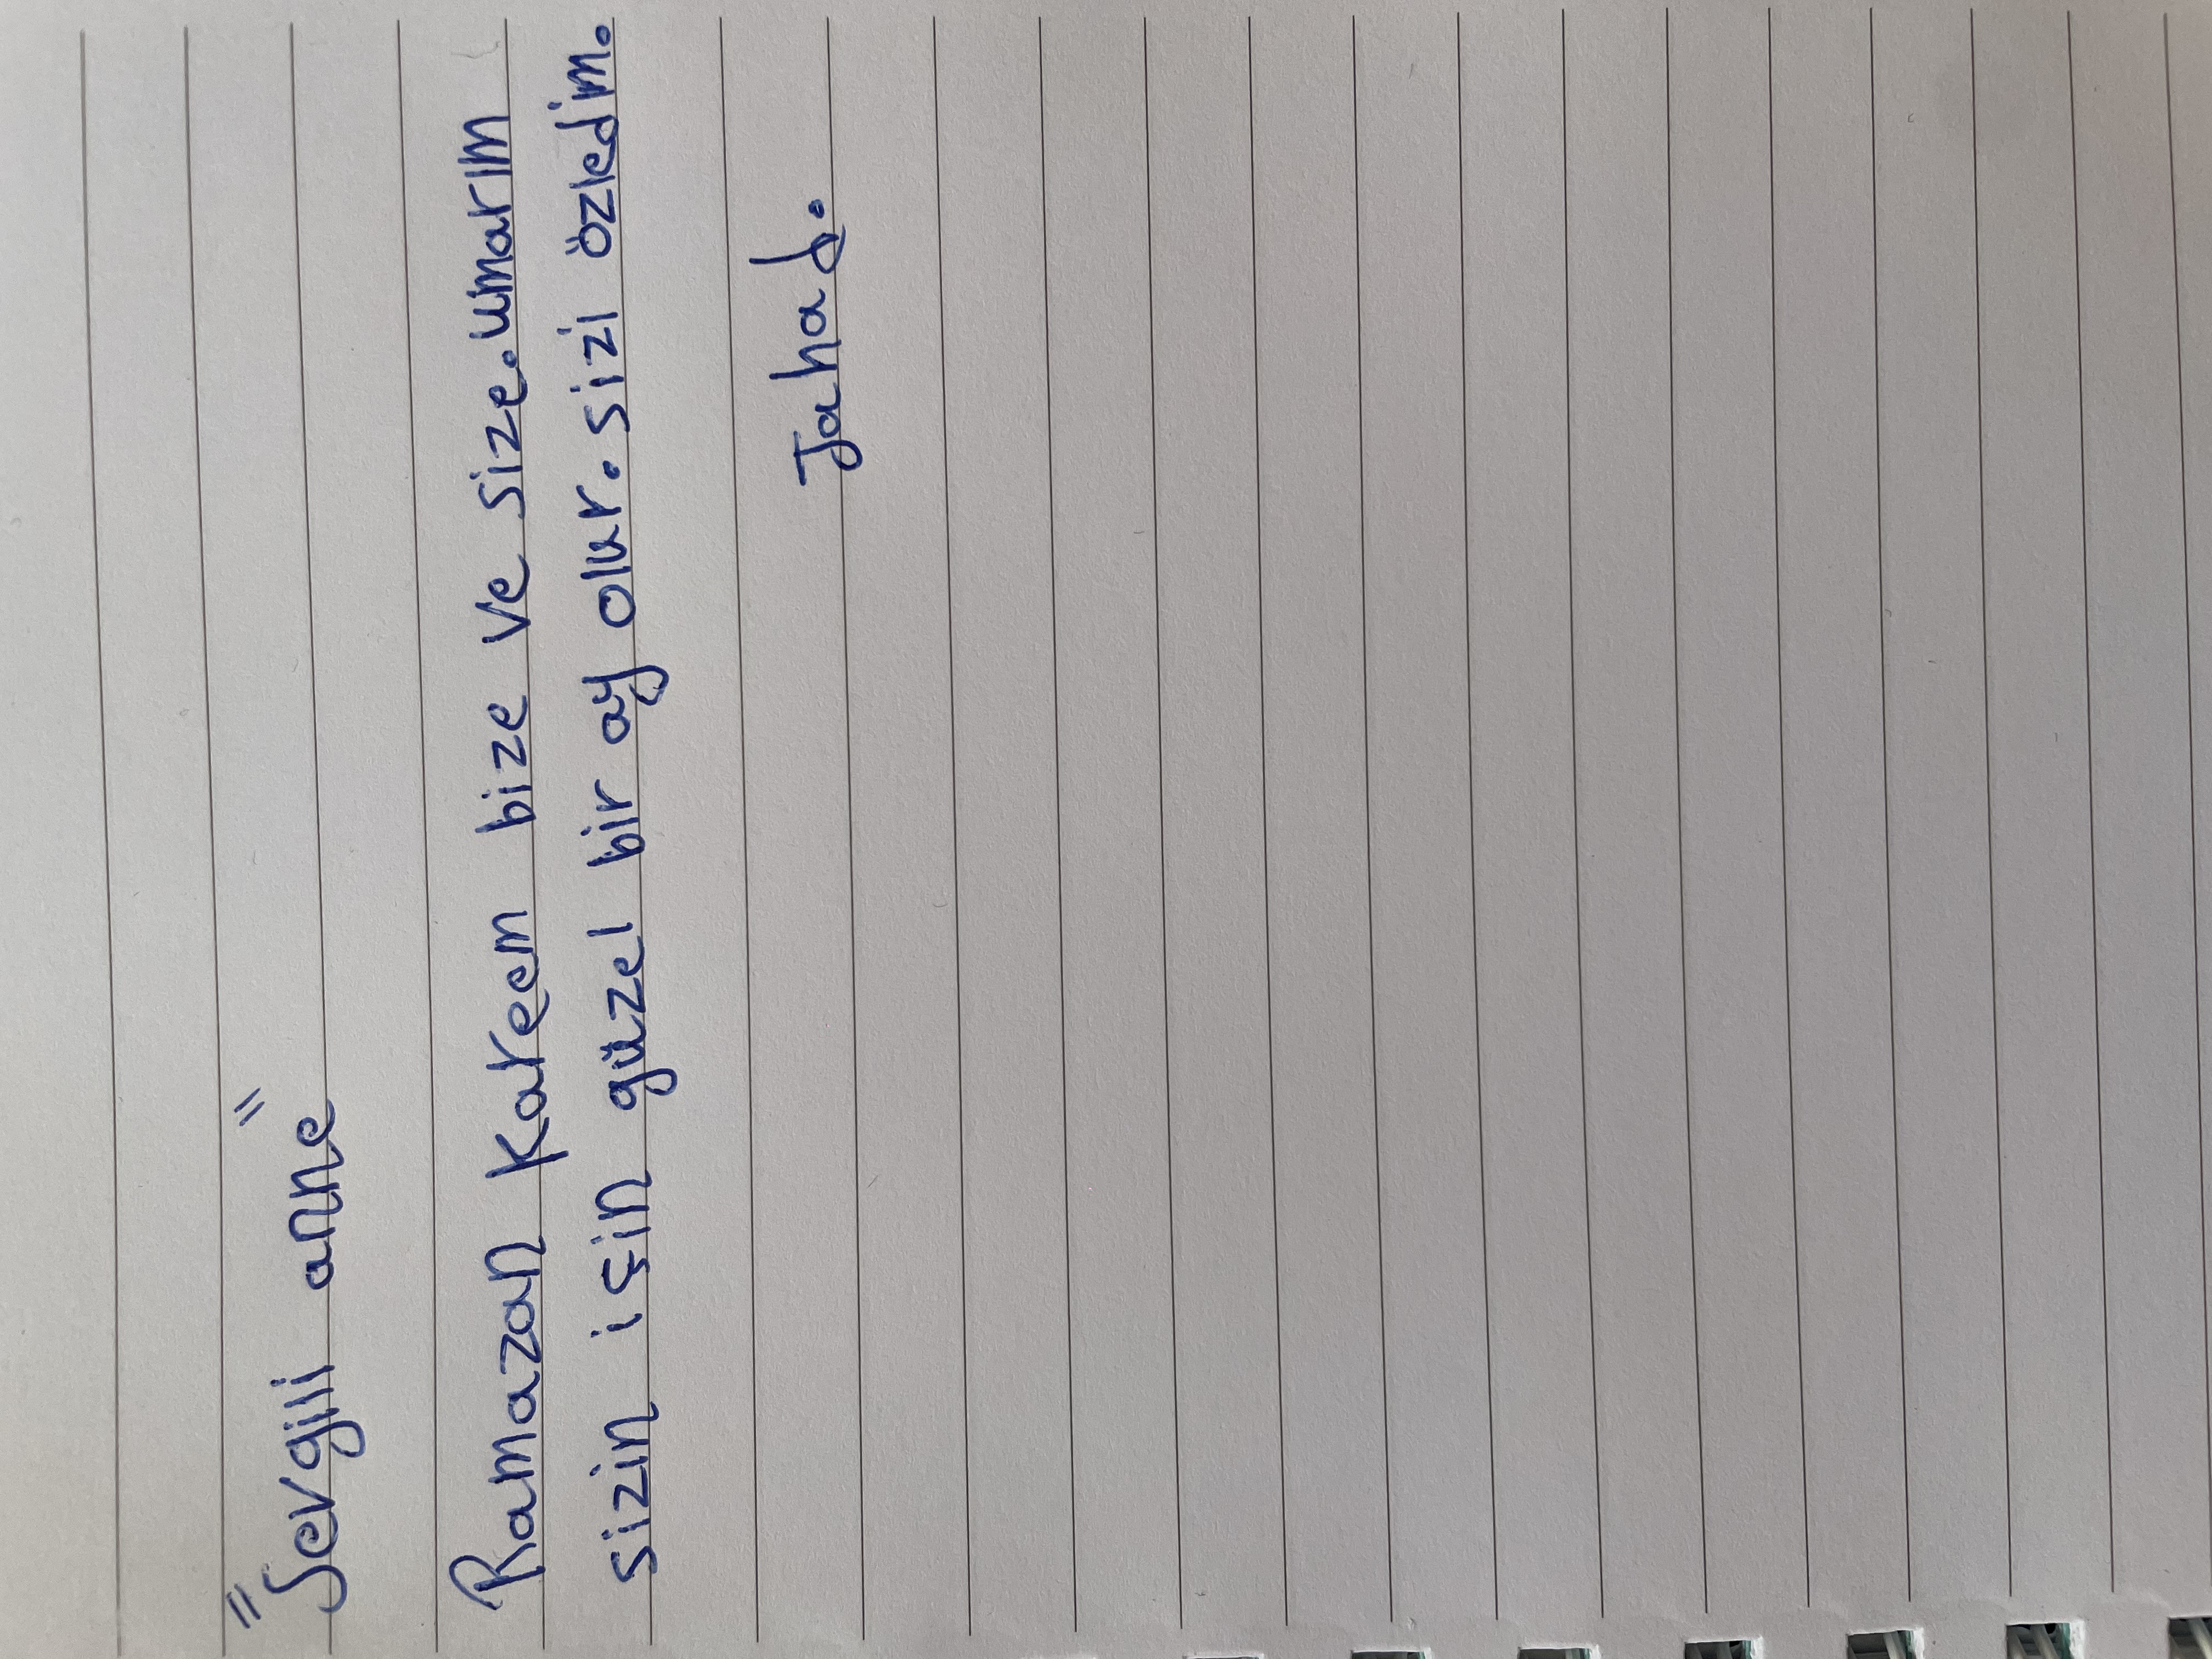 "Sevgili anne"
Ramazan Kareem bize ve size. umarım
sizin için güzel bir ay olur. sizi özledim.
Jahad.